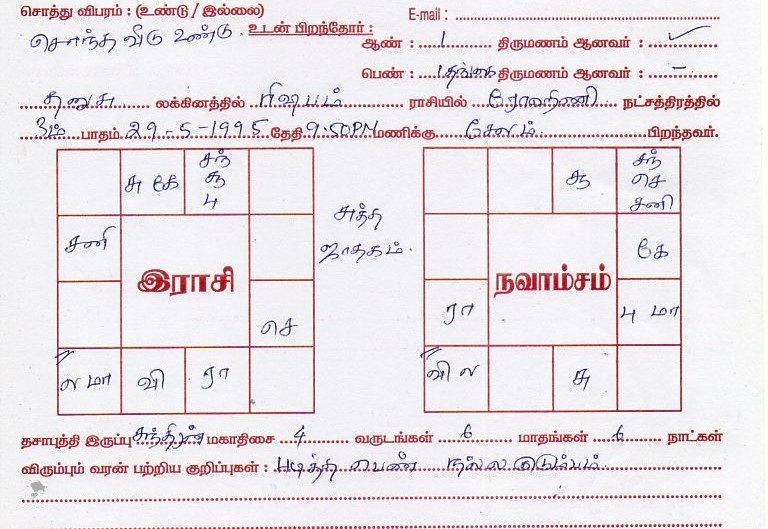 சொத்து விபரம் : (உண்டு / இல்லை) E-mail :
சொந்த வீடு உண்டு. உடன் பிறந்தோர் :
ஆண் : 1 திருமணம் ஆனவர் : ✓
பெண் : 1 தங்கை திருமணம் ஆனவர் : –
தனுசு லக்கினத்தில் ரிஷபம் ராசியில் ரோகிணி நட்சத்திரத்தில்
3ம் பாதம் 29-5-1995 தேதி 9.50PM மணிக்கு சேலம் பிறந்தவர்.
சு கே
சந்
சூ
பு
சனி
இராசி
செ
ல மா
வி
ரா
சுத்த
ஜாதகம்.
சூ
சந்
செ
சனி
கே
நவாம்சம்
ரா
பு மா
வி ல
சு
தசாபுத்தி இருப்பு சந்திரன் மகாதிசை 4 வருடங்கள் 6 மாதங்கள் 6 நாட்கள்
விரும்பும் வரன் பற்றிய குறிப்புகள் : படித்த பெண் நல்ல குடும்பம்.